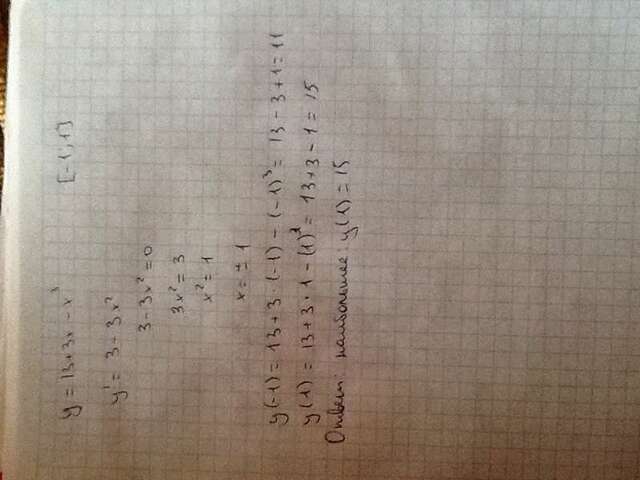 y = 13+3x - x³ [-1; 1]
y' = 3 - 3x²
3 - 3x² = 0
3x² = 3
x² = 1
x = ± 1
y(-1) = 13 + 3 · (-1) - (-1)³ = 13 - 3 + 1 = 11
y(1) = 13 + 3 · 1 - (1)³ = 13 + 3 - 1 = 15
Ответ: наибольшее: y(1) = 15